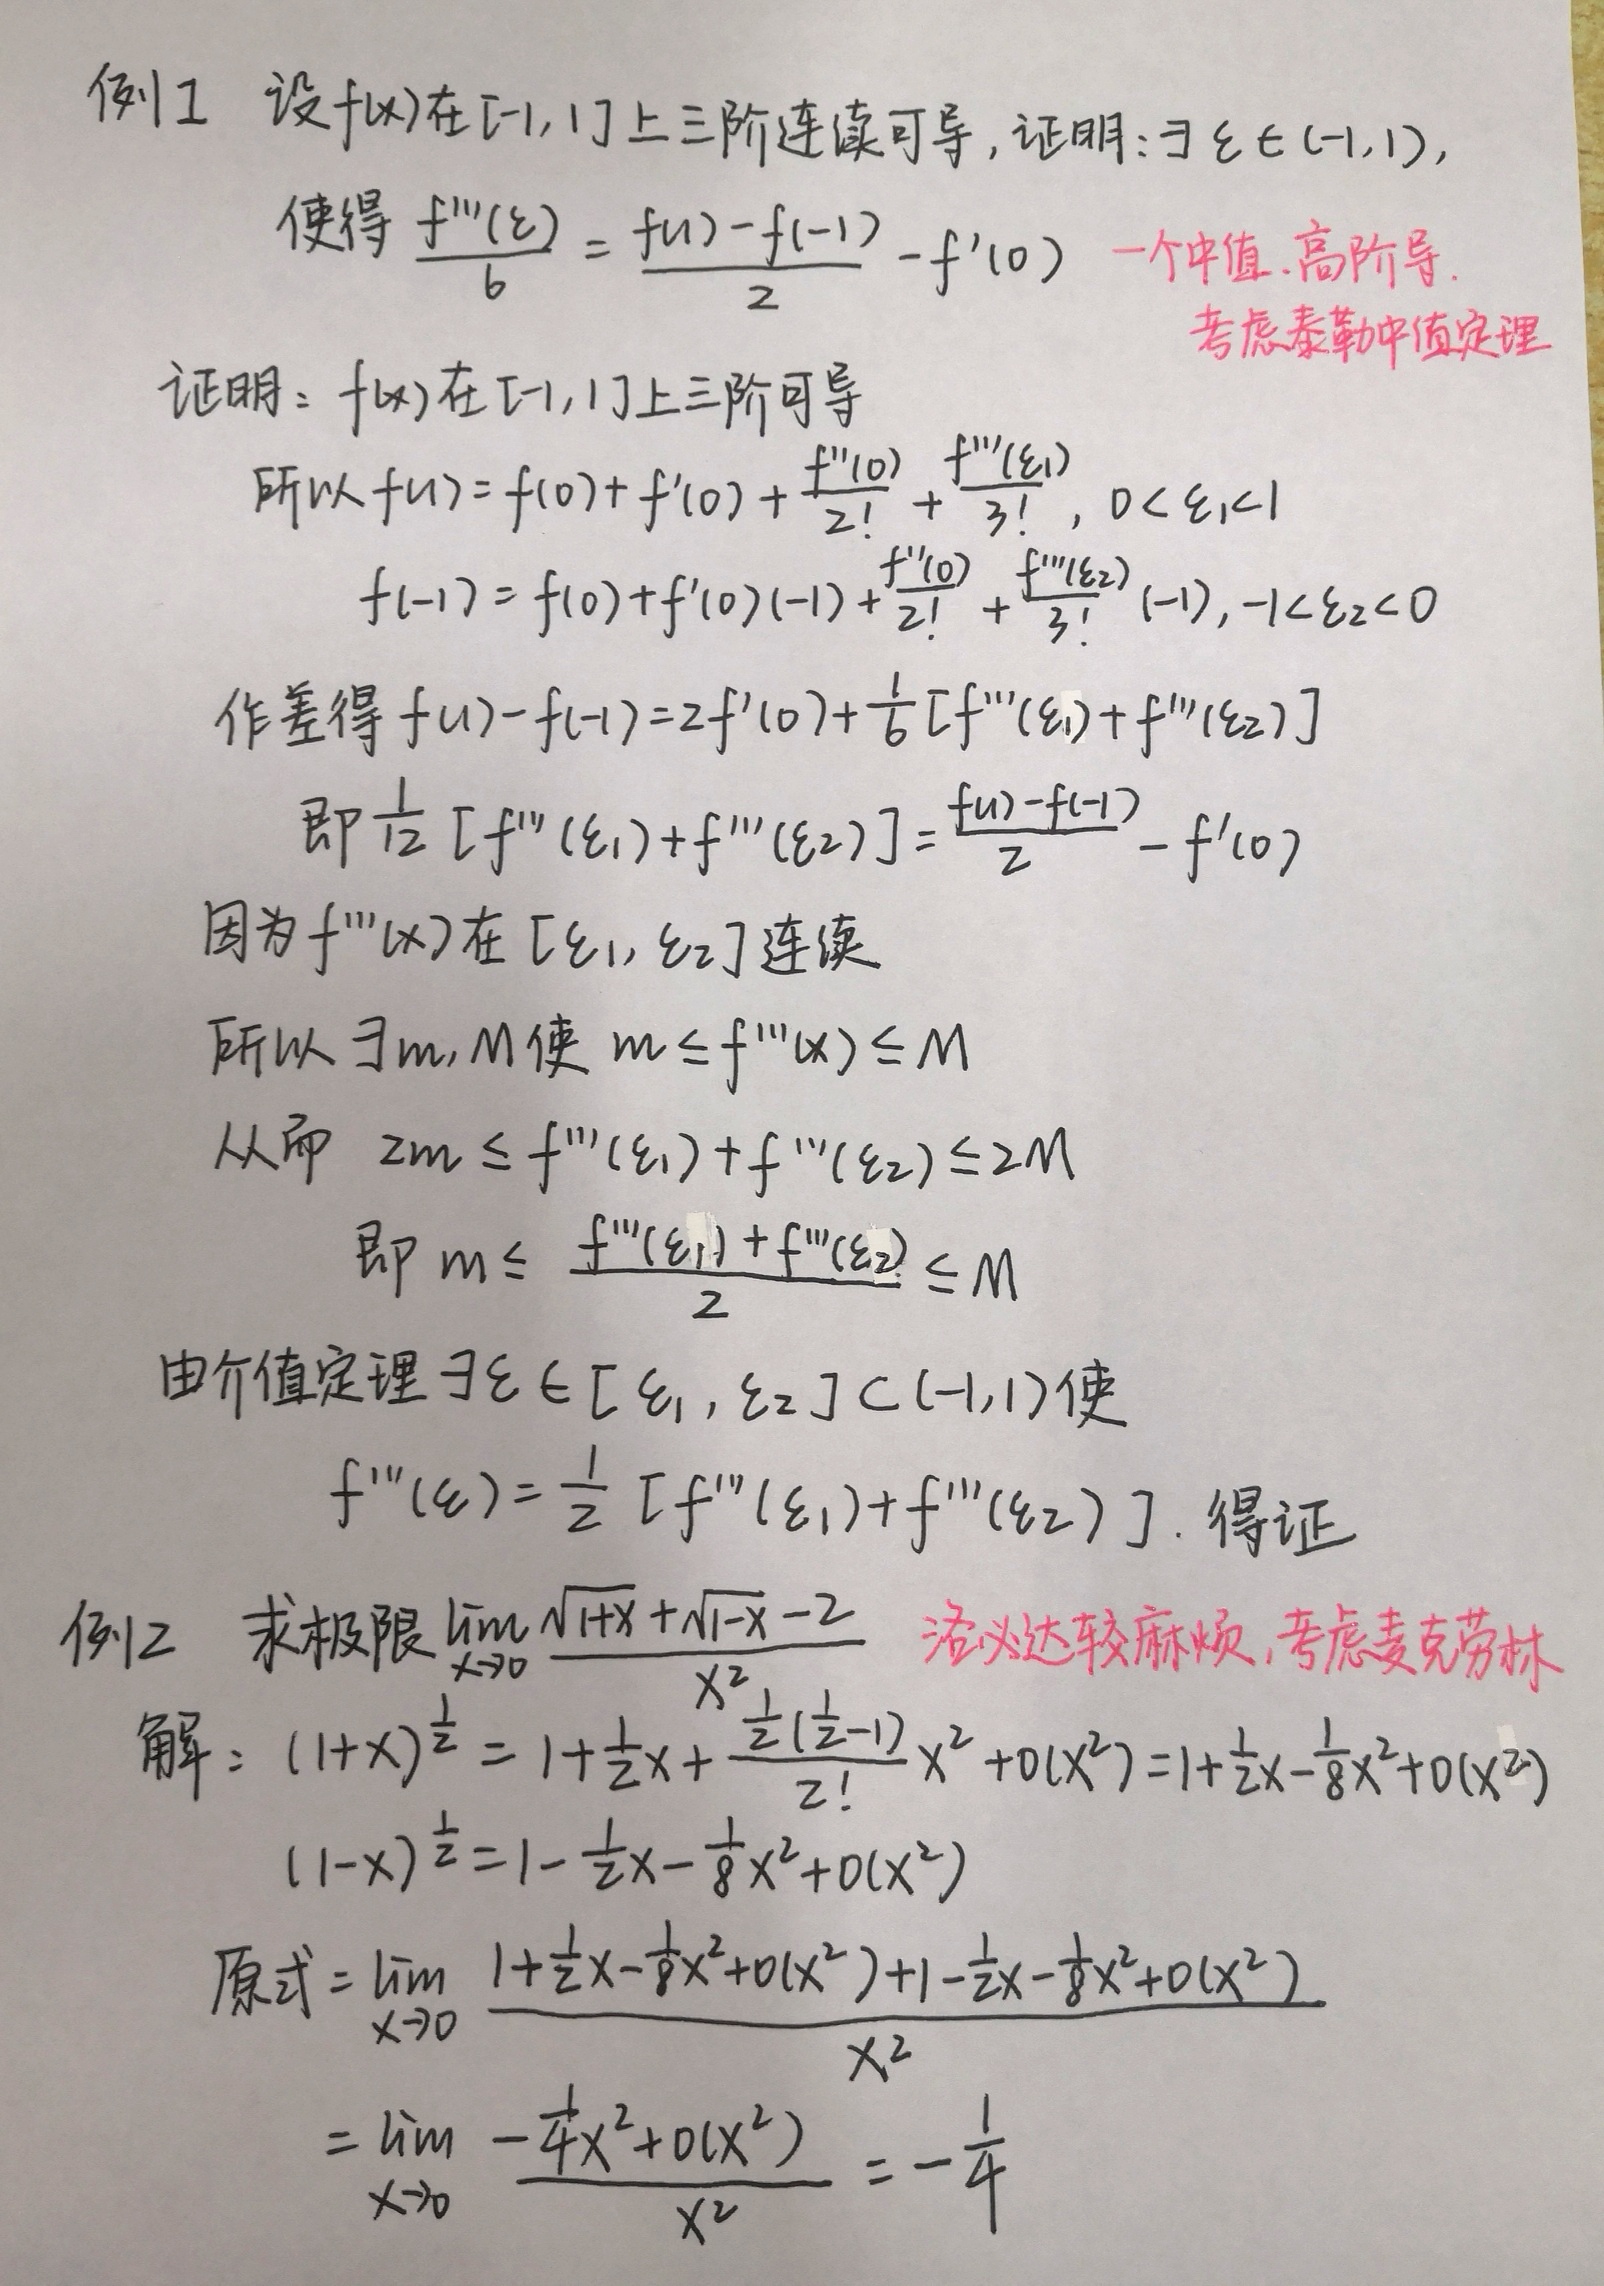 例1 设f(x)在[-1,1]上三阶连续可导,证明:∃ξ∈(-1,1),
使得 f'''(ξ)/6 = (f(1)-f(-1))/2 - f'(0) 一个中值.高阶导.
考虑泰勒中值定理
证明: f(x)在[-1,1]上三阶可导
所以f(1)=f(0)+f'(0)+f''(0)/2!+f'''(ξ₁)/3!, 0<ξ₁<1
f(-1)=f(0)+f'(0)(-1)+f''(0)/2!+f'''(ξ₂)/3!(-1), -1<ξ₂<0
作差得 f(1)-f(-1)=2f'(0)+1/6[f'''(ξ₁)+f'''(ξ₂)]
即 1/12[f'''(ξ₁)+f'''(ξ₂)]=(f(1)-f(-1))/2-f'(0)
因为f'''(x)在[ξ₁,ξ₂]连续
所以∃m,M使 m≤f'''(x)≤M
从而 2m≤f'''(ξ₁)+f'''(ξ₂)≤2M
即 m≤(f'''(ξ₁)+f'''(ξ₂))/2≤M
由介值定理∃ξ∈[ξ₁,ξ₂]⊂(-1,1)使
f'''(ξ)=1/2[f'''(ξ₁)+f'''(ξ₂)].得证
例2 求极限 lim x→0 (√(1+x)+√(1-x)-2)/x² 洛必达较麻烦,考虑麦克劳林
解: (1+x)^(1/2)=1+1/2x+(1/2(1/2-1))/2! x²+o(x²)=1+1/2x-1/8x²+o(x²)
(1-x)^(1/2)=1-1/2x-1/8x²+o(x²)
原式=lim x→0 (1+1/2x-1/8x²+o(x²)+1-1/2x-1/8x²+o(x²))/x²
=lim x→0 (-1/4x²+o(x²))/x²=-1/4